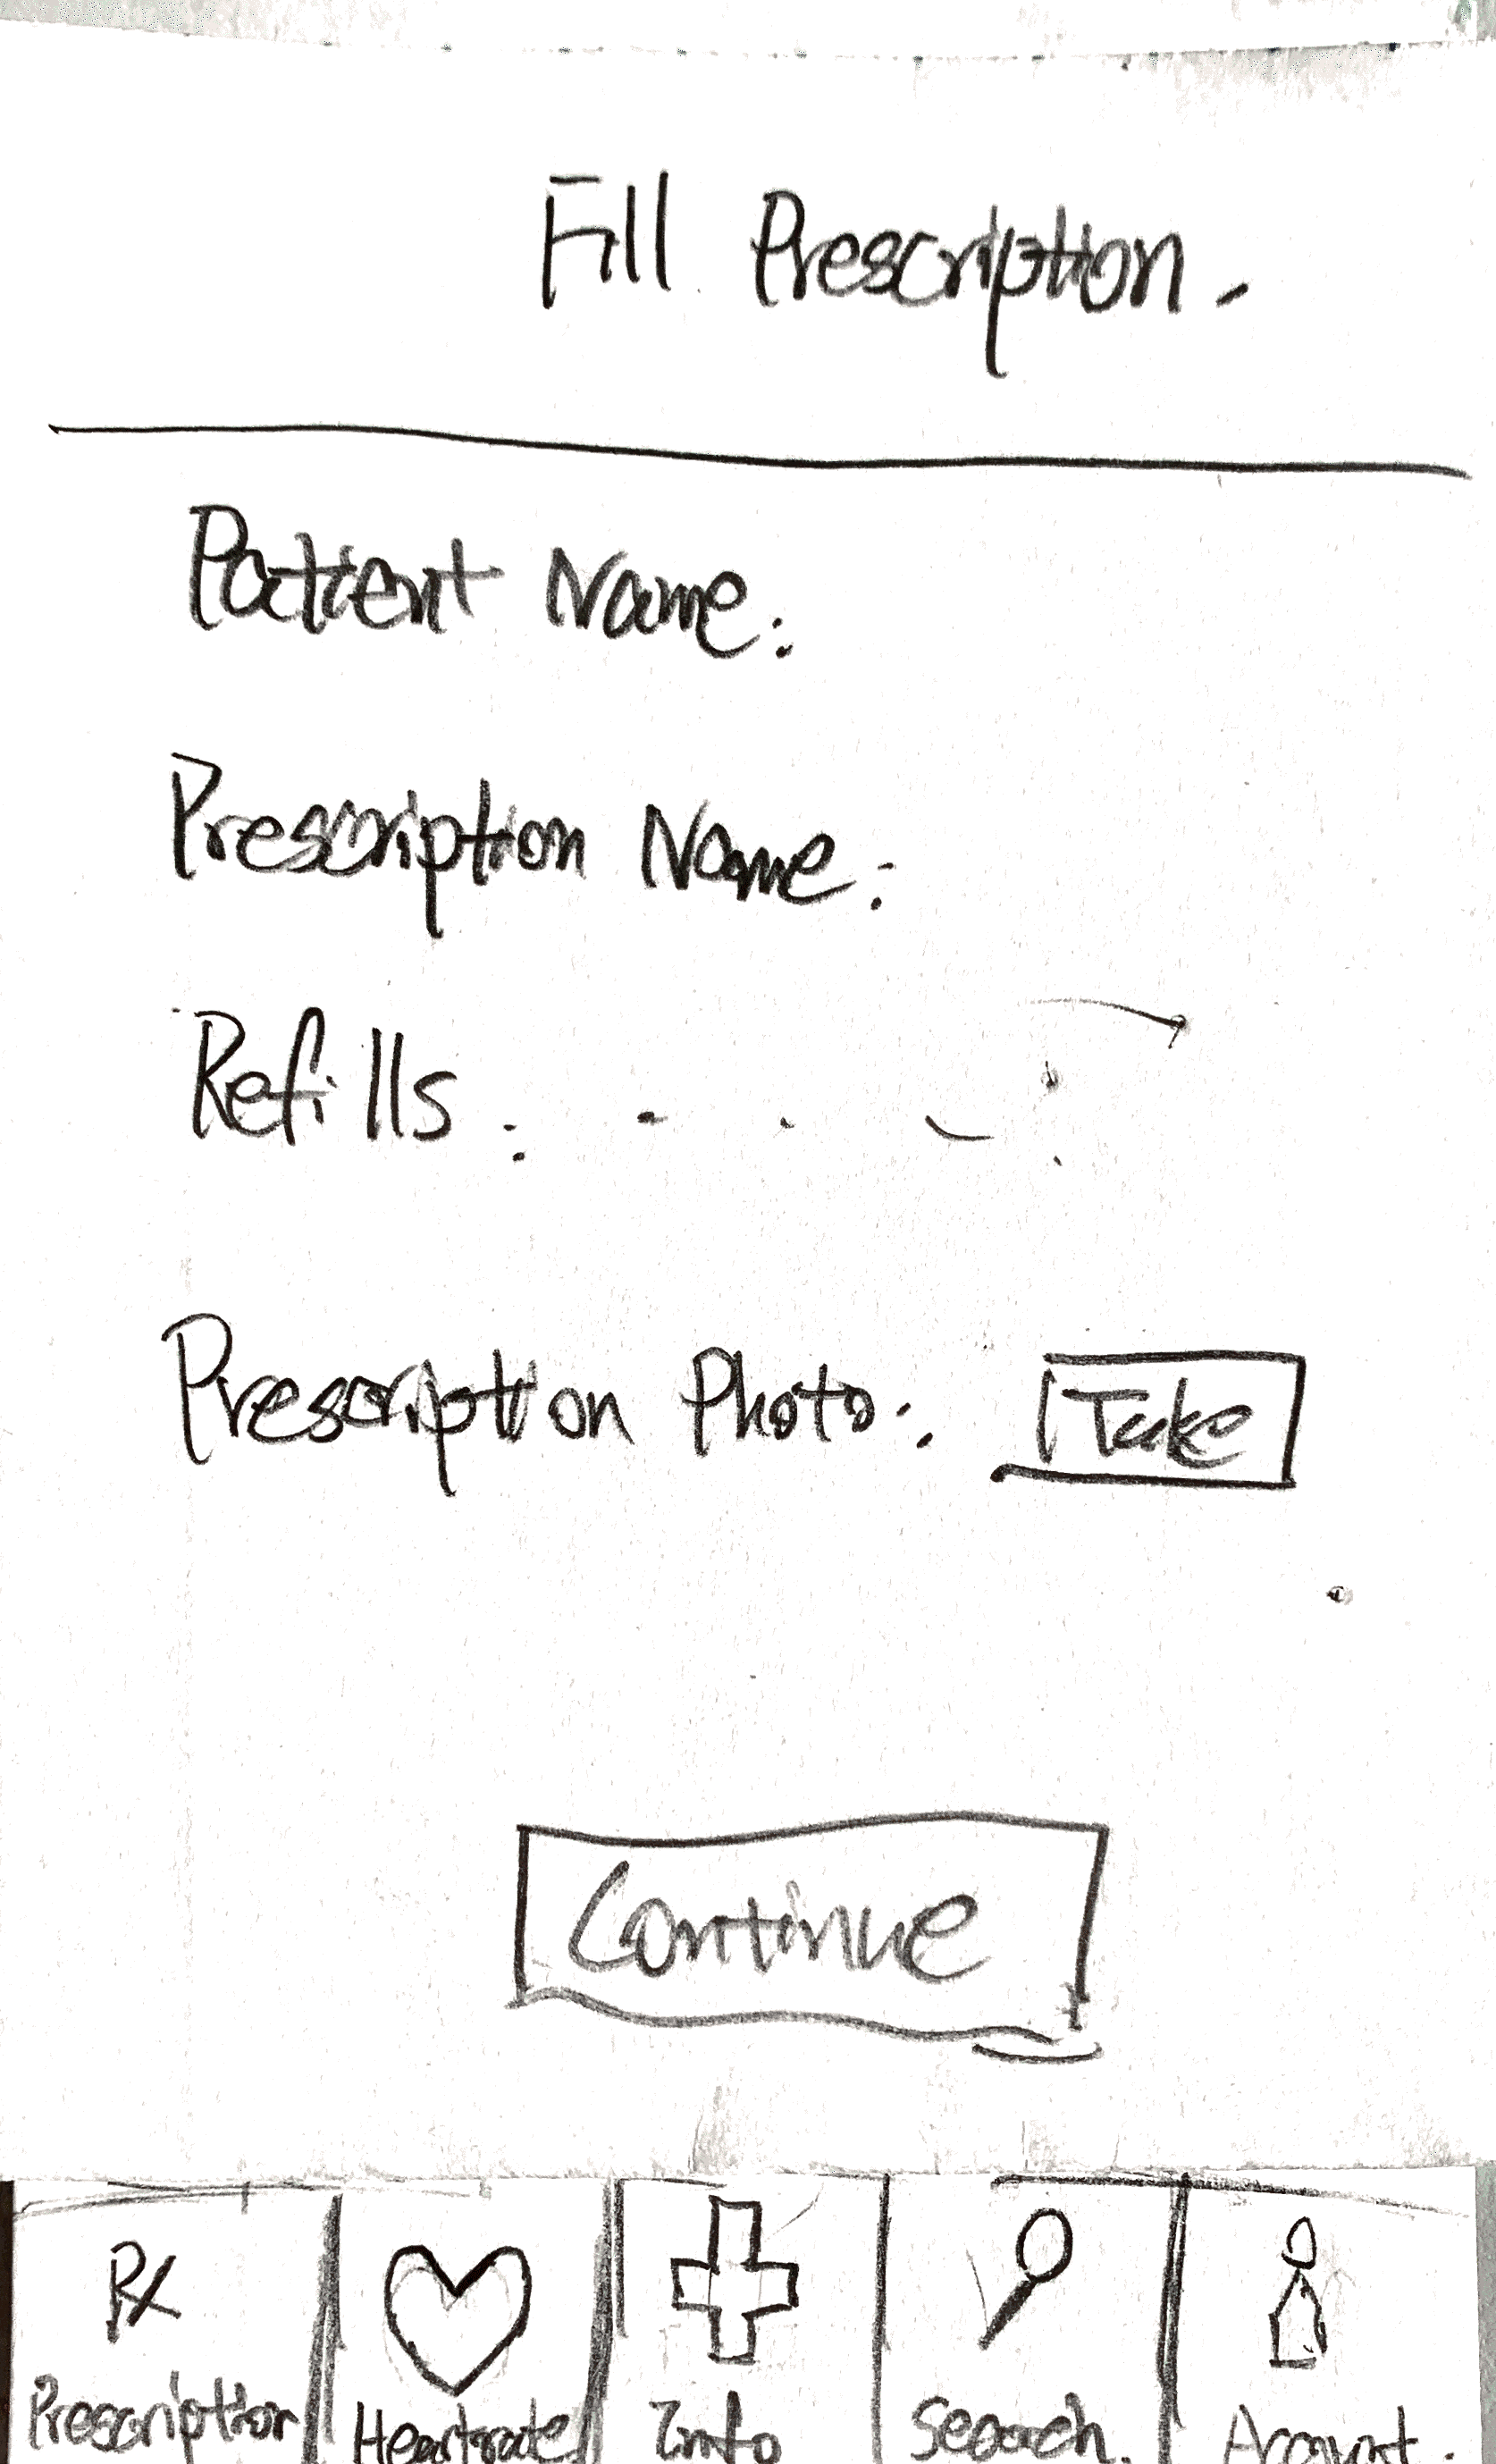 Fill Prescription.
Patient Name:
Prescription Name:
Refills:
Prescription Photo: Take
Continue
Rx
Prescription Heartrate Info Search. Account.